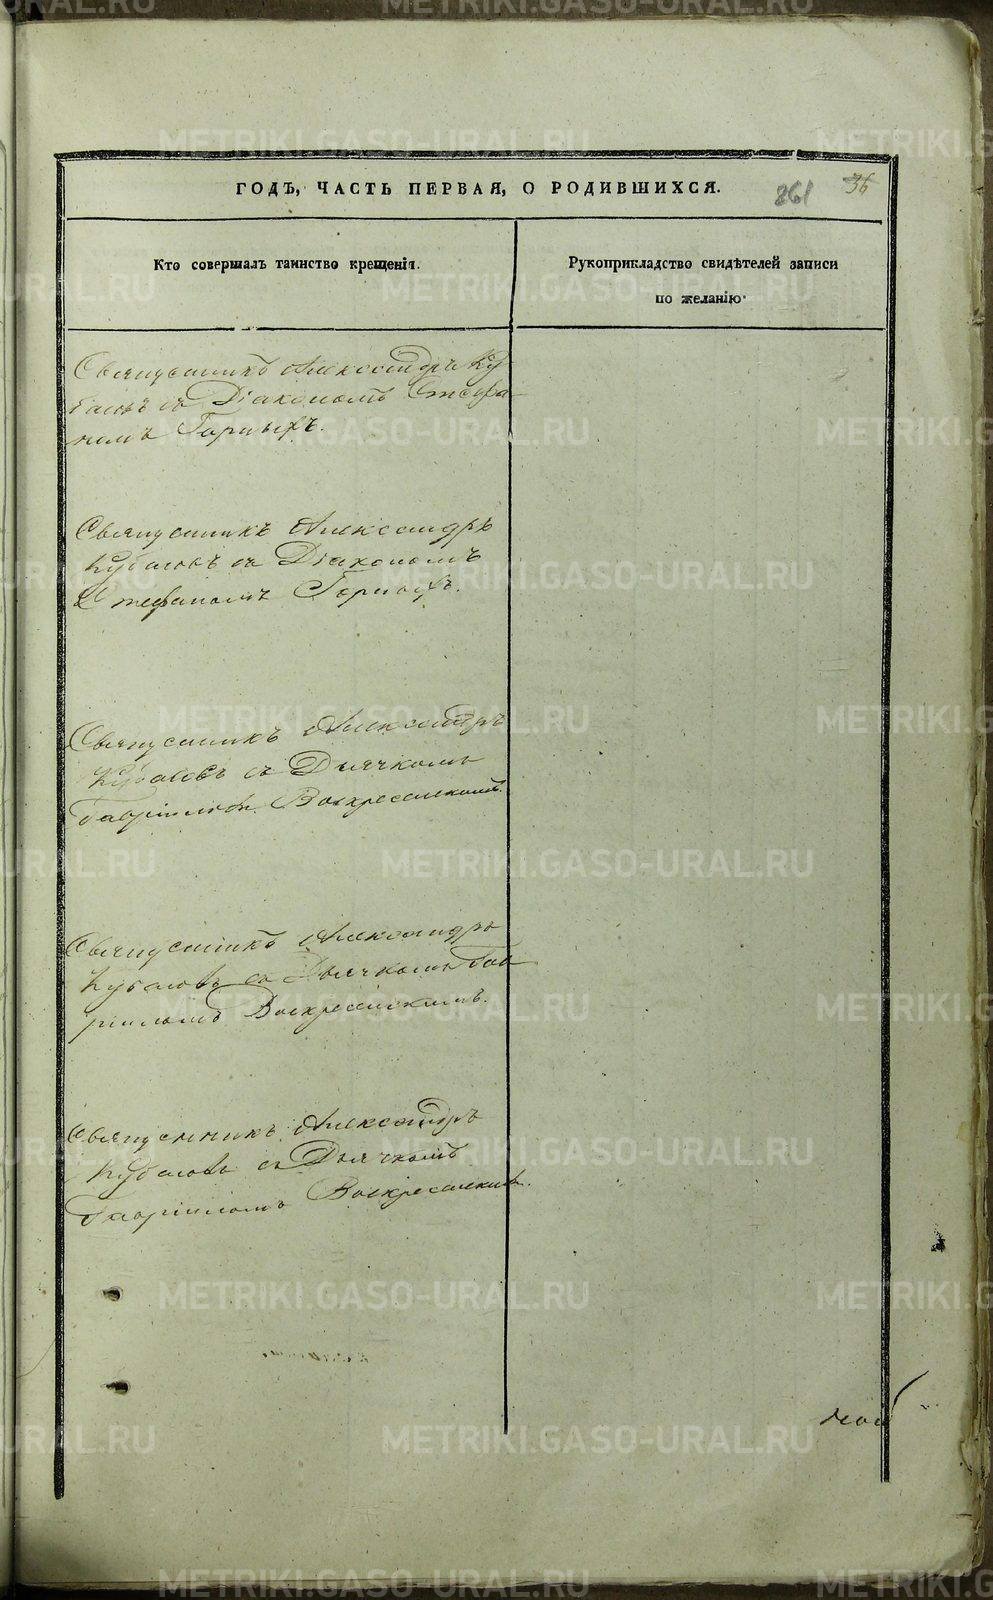 ГОДЪ, ЧАСТЬ ПЕРВАЯ, О РОДИВШИХСЯ.
261 36
Кто совершалъ таинство крещенія.
Рукоприкладство свидѣтелей записи
по желанію.
Священникъ Александръ Ку
баловъ съ Діакономъ Стефа
номъ Горныхъ.
Священникъ Александръ
Кубаловъ съ Діакономъ
Стефаномъ Горныхъ.
Священникъ Александръ
Кубаловъ съ Дьячкомъ
Гавріиломъ Воскресенскимъ.
Священникъ Александръ
Кубаловъ съ Дьячкомъ Гав
ріиломъ Воскресенскимъ.
Священникъ Александръ
Кубаловъ съ Дьячкомъ
Гавріиломъ Воскресенскимъ.
METRIKI.GASO-URAL.RU